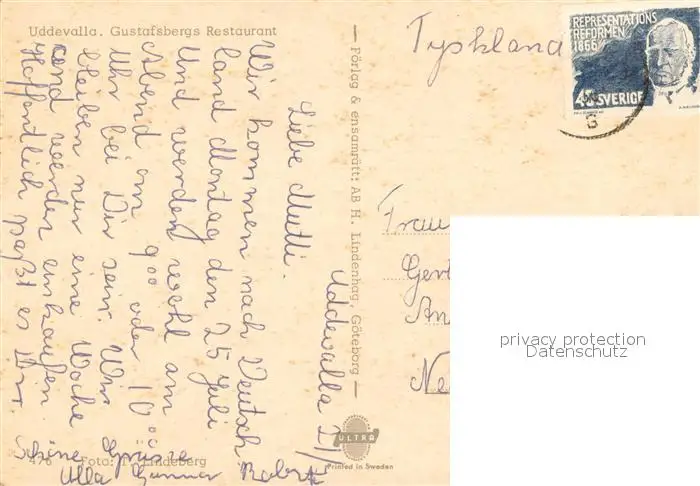 Uddevalla. Gustafsbergs Restaurant
Uddevalla 21/
Liebe Mutti.
Wir kommen nach Deutsch
land Montag den 25 Juli
Und werden wohl am
Abend um 9⁰⁰ oder 10⁰⁰
Uhr bei Dir sein. Wir
bleiben nur eine Woche
und werden einkaufen.
Hoffentlich paßt es Dir
Schöne Grüsse
Ulla Gunnar Robert
476 Foto: Lindeberg
— Förlag & ensamrätt: AB H. Lindenhag, Göteborg —
ULTRA
Printed in Sweden
Tyskland
REPRESENTATIONS
REFORMEN
1866
SVERIGE
Frau
Gert
An
Ne
privacy protection
Datenschutz